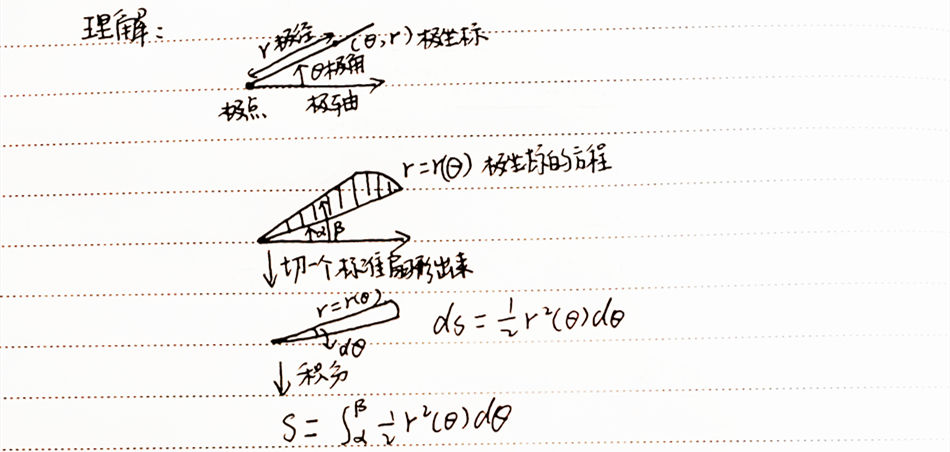 理解:
r极径 (θ,r)极坐标
θ极角
极点 极轴
r=r(θ) 极坐标的方程
α β
↓切一个标准扇形出来
r=r(θ) ds=½r²(θ)dθ
dθ
↓积分
S=∫_α^β ½r²(θ)dθ